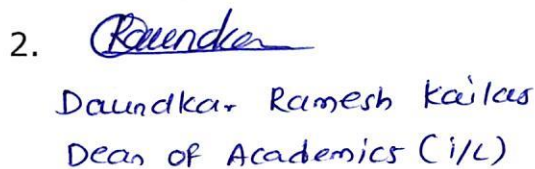 2. Raundkar
Daundkar Ramesh Kailas
Dean of Academics (i/c)